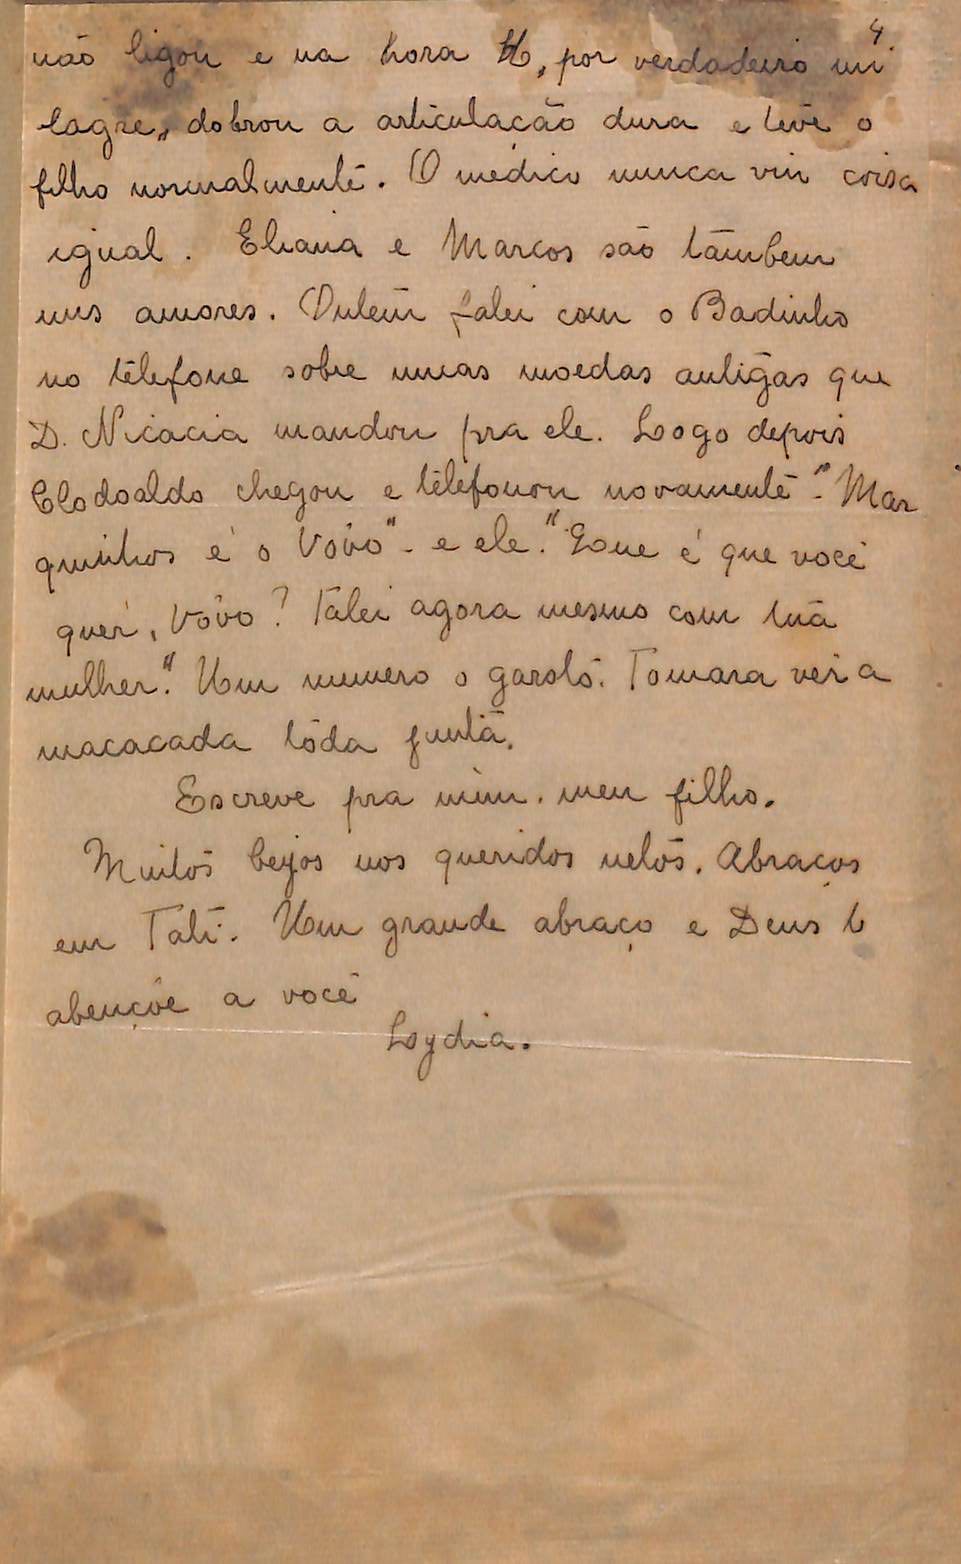 4
não ligou e na hora H, por verdadeiro mi
lagre, dobrou a articulação dura e teve o
filho normalmente. O médico nunca viu coisa
igual. Eliana e Marcos são tâmbem
uns amores. Ontem falei com o Badinho
no telefone sobre umas moedas antigas que
D. Nicacia mandou pra ele. Logo depois
Clodoaldo chegou e telefonou novamente - "Mar
quinhos é o Vôvo" - e ele: "Que é que você
quer, Vôvo? Falei agora mesmo com tua
mulher". Um numero o garoto. Tomara ver a
macacada tôda junta.
Escreve pra mim, meu filho.
Muitos beijos nos queridos netos. Abraços
em Tati. Um grande abraço e Deus t
abençõe a você
Lydia.